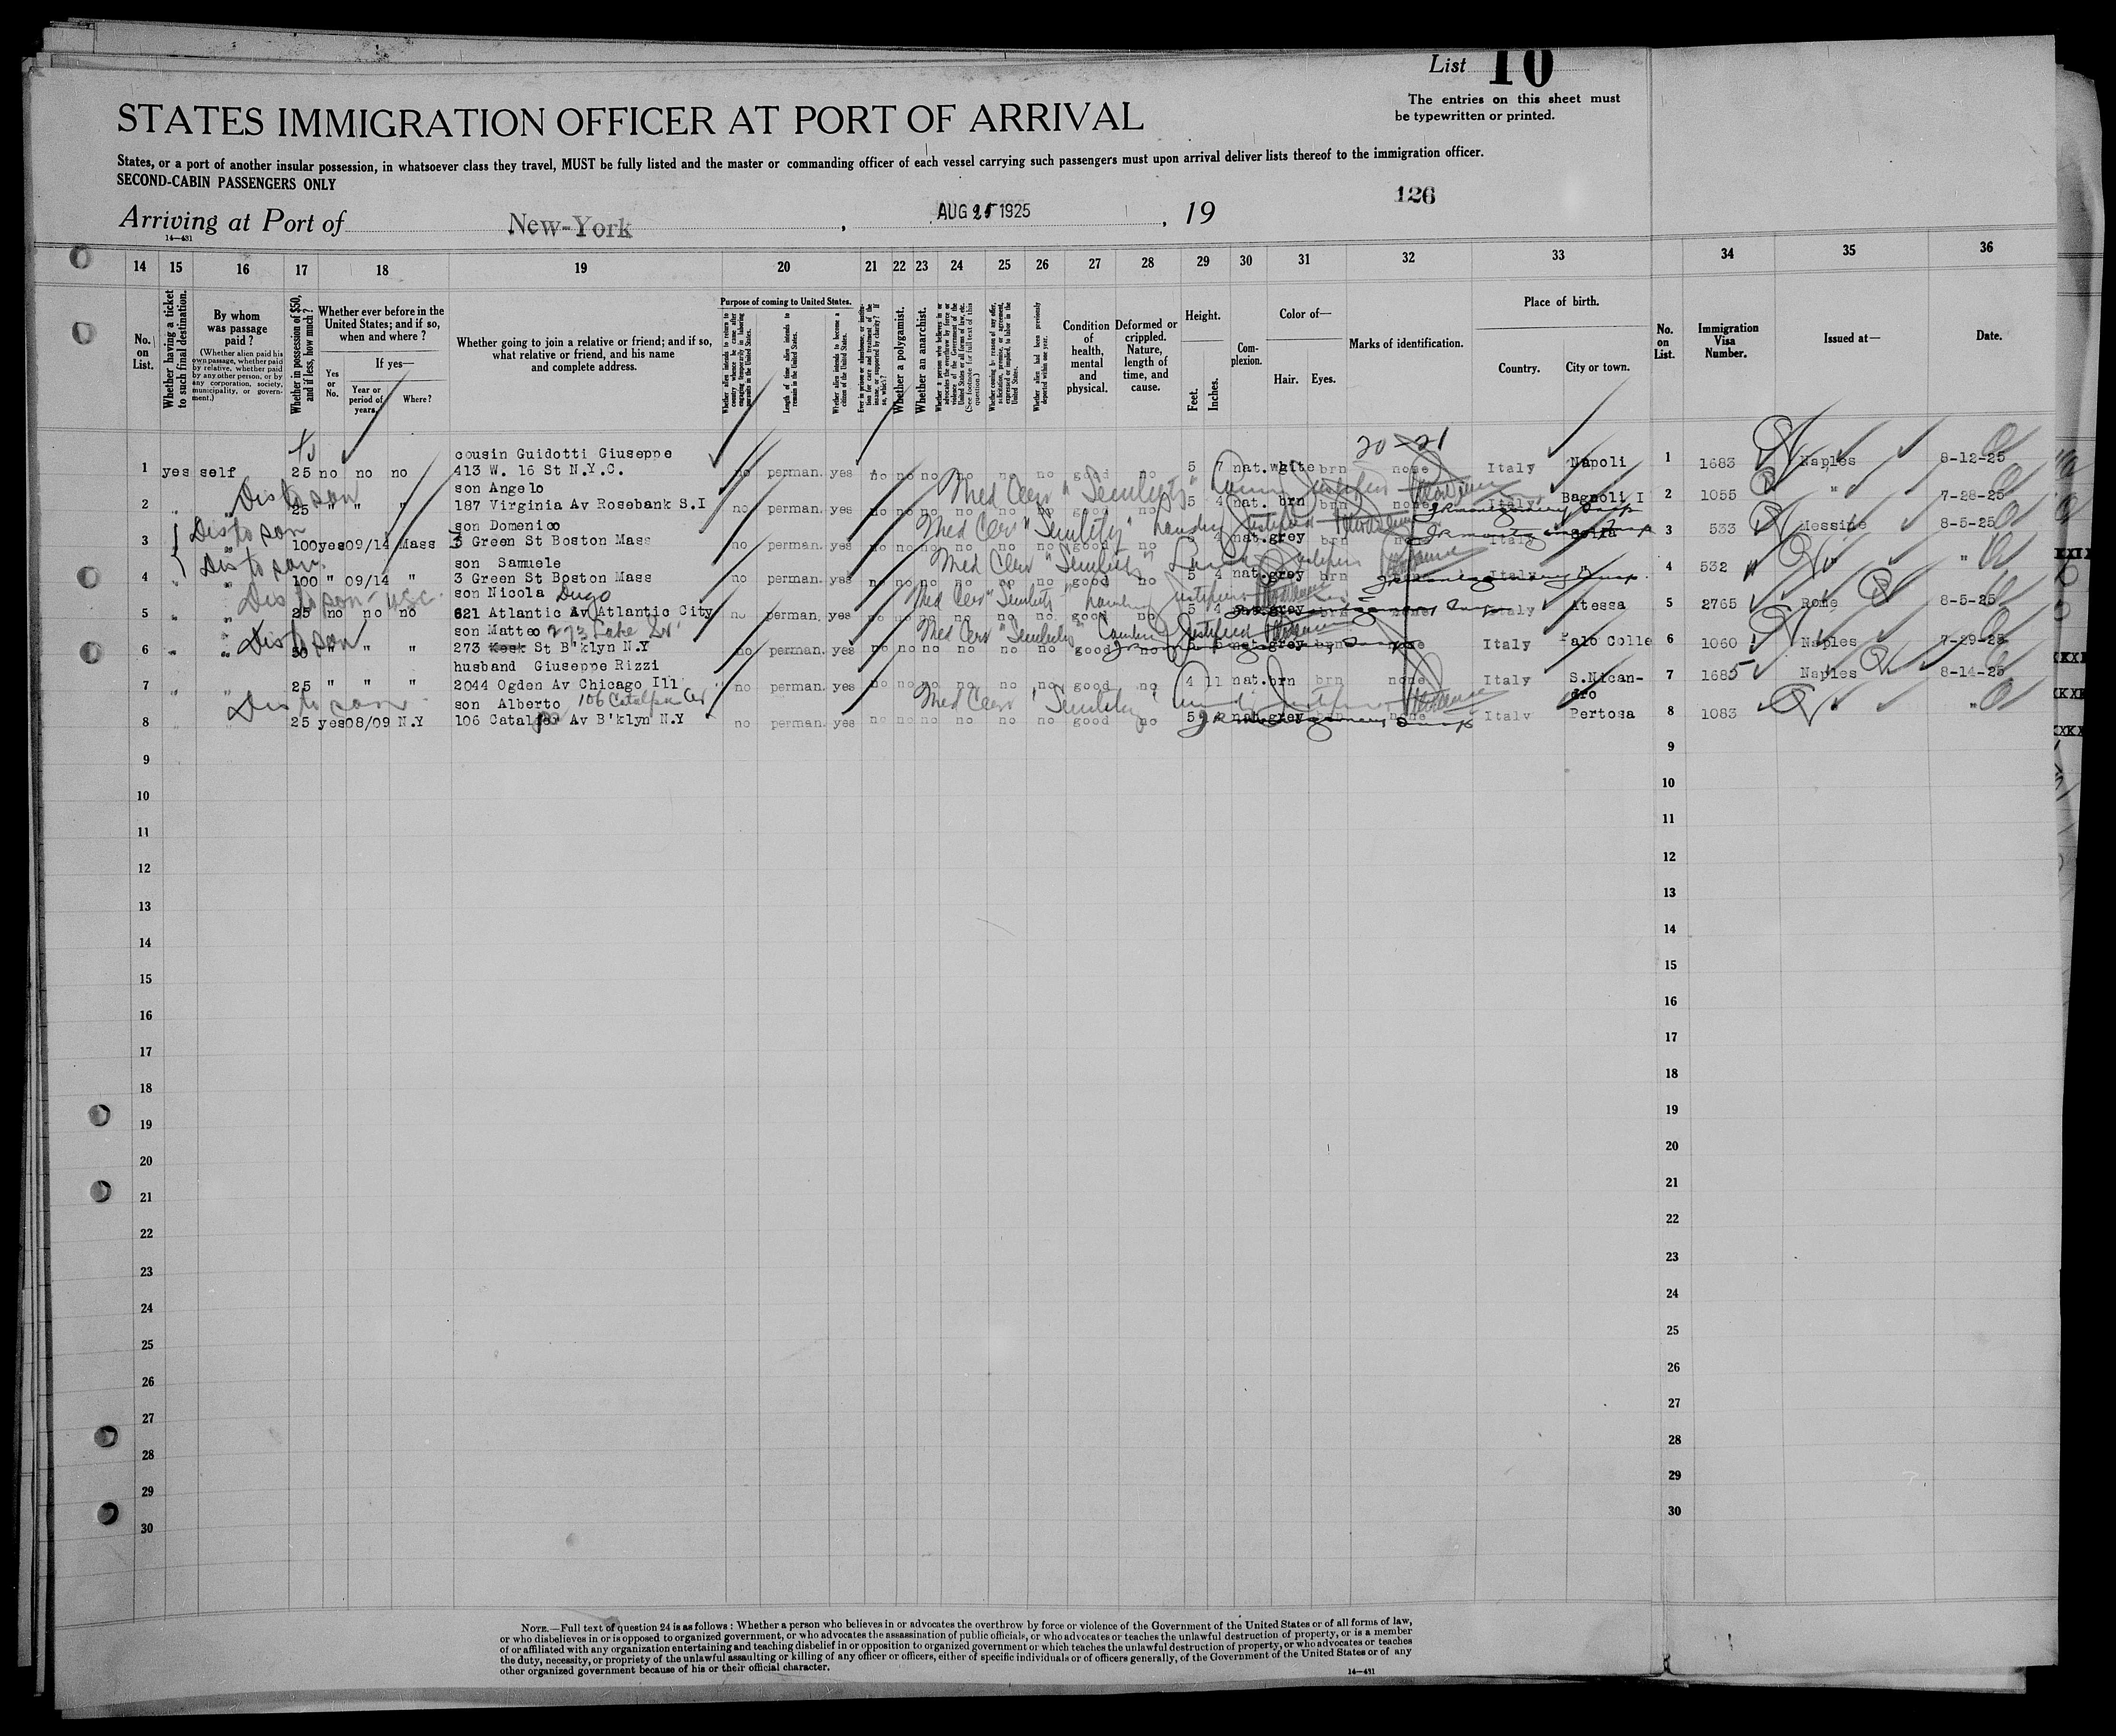 List 10
The entries on this sheet must
be typewritten or printed.
STATES IMMIGRATION OFFICER AT PORT OF ARRIVAL
States, or a port of another insular possession, in whatsoever class they travel, MUST be fully listed and the master or commanding officer of each vessel carrying such passengers must upon arrival deliver lists thereof to the immigration officer.
SECOND-CABIN PASSENGERS ONLY
126
Arriving at Port of New-York, AUG 25 1925, 19
14—431
14 15 16 17 18 19 20 21 22 23 24 25 26 27 28 29 30 31 32 33 34 35 36
No. on List.
Whether having a ticket to such final destination.
By whom was passage paid?
(Whether alien paid his own passage, whether paid by relative, whether paid by any other person, or by any corporation, society, municipality, or government.)
Whether in possession of $50, and if less, how much?
Whether ever before in the United States; and if so, when and where?
If yes—
Yes or No.
Year or period of years.
Where?
Whether going to join a relative or friend; and if so, what relative or friend, and his name and complete address.
Purpose of coming to United States.
Whether alien intends to return to country whence he came after engaging temporarily in laboring pursuits in the United States.
Length of time alien intends to remain in the United States.
Whether alien intends to become a citizen of the United States.
Ever in prison or almshouse, or institution for care and treatment of the insane, or supported by charity? If so, which?
Whether a polygamist.
Whether an anarchist.
Whether a person who believes in or advocates the overthrow by force or violence of the Government of the United States or all forms of law, etc. (See footnote for full text of this question.)
Whether coming by reason of any offer, solicitation, promise, or agreement, expressed or implied, to labor in the United States.
Whether alien had been previously deported within one year.
Condition of health, mental and physical.
Deformed or crippled. Nature, length of time, and cause.
Height.
Feet. Inches.
Complexion.
Color of—
Hair. Eyes.
Marks of identification.
Place of birth.
Country. City or town.
No. on List.
Immigration Visa Number.
Issued at—
Date.
20 21
cousin Guidotti Giuseppe
1 yes self 25 no no no 413 W. 16 St N.Y.C. no perman. yes no no no no no no good no 5 7 nat. white brn none Italy Napoli 1 1683 Naples 8-12-25
Dis to son
son Angelo
Med Cer "Senility"
2 " " 25 " " " 187 Virginia Av Rosebank S.I no perman. yes no no no no no no good no 5 4 nat. brn brn none Italy Bagnoli I 2 1055 " 7-28-25
Dis to son
son Domenico
Med Cer "Senility" Landing Justified
3 " " 100 yes 09/14 Mass 3 Green St Boston Mass no perman. yes no no no no no no good no 5 4 nat. grey brn Italy 3 533 Messine 8-5-25
Dis to son
son Samuele
Med Cer "Senility"
4 " " 100 " 09/14 " 3 Green St Boston Mass no perman. yes no no no no no no good no 5 4 nat. grey brn Italy " 4 532 "
Dis to son
son Nicola Dugo
Med Cer "Senility"
5 " " 25 no no no 621 Atlantic Av Atlantic City no perman. yes no no no no no no good no 5 4 nat. grey brn none Italy Atessa 5 2765 Rome 8-5-25
Dis to son
son Matteo 273 Lake St
Med Cer "Senility" Landing Justified
6 " " 50 " " " 273 St B'klyn N.Y no perman. yes no no no no no no good no 5 nat. grey brn none Italy Palo Colle 6 1060 Naples 7-29-25
husband Giuseppe Rizzi
7 " " 25 " " " 2044 Ogden Av Chicago Ill no perman. yes no no no no no no good no 4 11 nat. brn brn none Italy S.Nicandro 7 1685 Naples 8-14-25
Dis to son
son Alberto 106 Catalpa Av
Med Cer "Senility"
8 " " 25 yes 08/09 N.Y 106 Catalpa Av B'klyn N.Y no perman. yes no no no no no no good no 5 nat. grey brn none Italy Pertosa 8 1083 "
9 9
10 10
11 11
12 12
13 13
14 14
15 15
16 16
17 17
18 18
19 19
20 20
21 21
22 22
23 23
24 24
25 25
26 26
27 27
28 28
29 29
30 30
NOTE.—Full text of question 24 is as follows: Whether a person who believes in or advocates the overthrow by force or violence of the Government of the United States or of all forms of law,
or who disbelieves in or is opposed to organized government, or who advocates the assassination of public officials, or who advocates or teaches the unlawful destruction of property, or is a member
of or affiliated with any organization entertaining and teaching disbelief in or opposition to organized government or which teaches the unlawful destruction of property, or who advocates or teaches
the duty, necessity, or propriety of the unlawful assaulting or killing of any officer or officers, either of specific individuals or of officers generally, of the Government of the United States or of any
other organized government because of his or their official character.
14—431